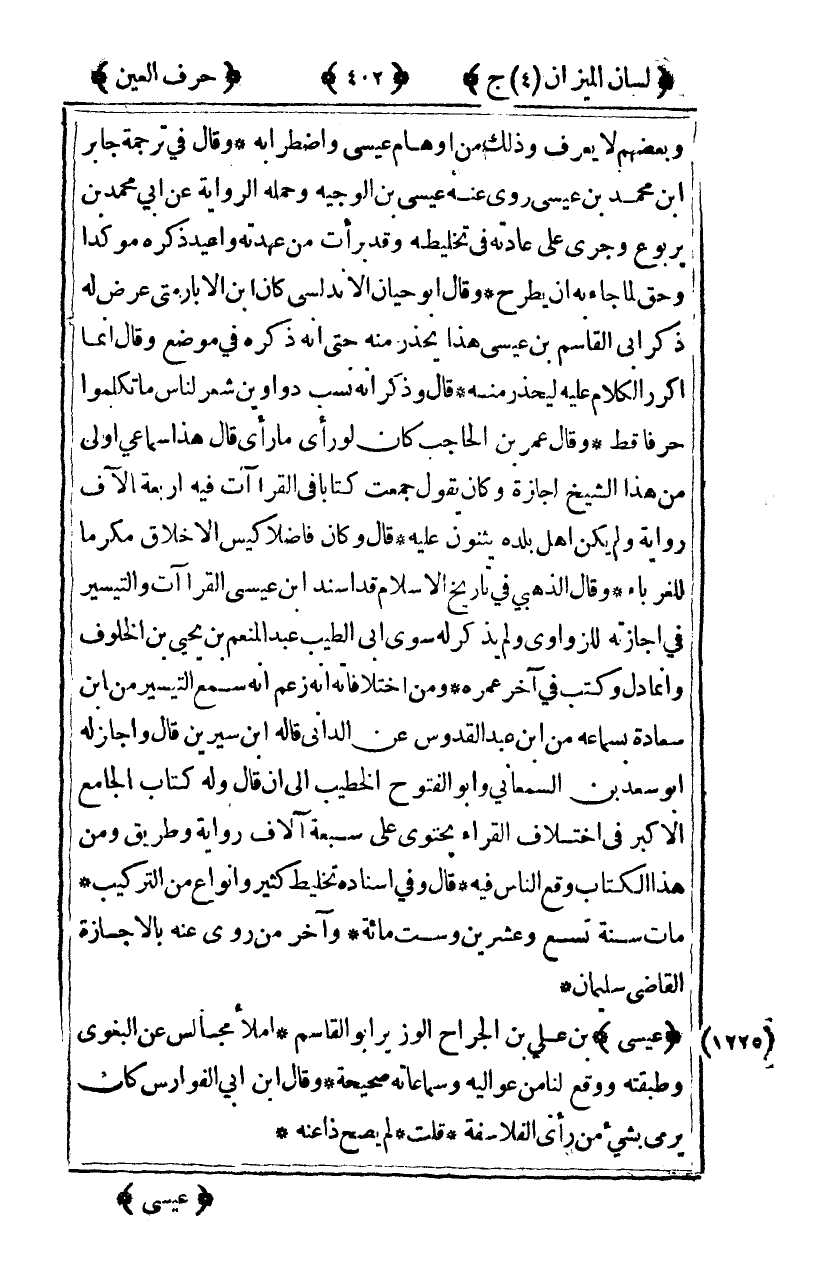 ﴿ لسان الميزان (٤) ج ﴾ ﴿ ٤٠٢ ﴾ ﴿ حرف العين ﴾
وبعضهم لا يعرف وذلك من اوهام عيسى واضطرابه * وقال في ترجمة جابر
ابن محمد بن عيسى روى عنه عيسى بن الوجيه وحمله الرواية عن ابي محمد بن
يربوع وجرى على عادته فى تخليطه وقد برأت من عهدته واعيد ذكره موكدا
وحق لما جاء به ان يطرح * وقال ابو حيان الاندلسى كان ابن الابار متى عرض له
ذكر ابى القاسم بن عيسى هذا يحذر منه حتى انه ذكره في موضع وقال انما
اكرر الكلام عليه ليحذر منه * قال وذكر انه نسب دواوين شعر لناس ما تكلموا
حرفا قط * وقال عمر بن الحاجب كان لو رأى ما رأى قال هذا سماعي اولى
من هذا الشيخ اجازة وكان يقول جمعت كتابا فى القراآت فيه اربعة الآف
رواية ولم يكن اهل بلده يثنون عليه * قال وكان فاضلا كيس الاخلاق مكرما
للغرباء * وقال الذهبي في تاريخ الاسلام قد اسند ابن عيسى القراآت والتيسير
في اجازته للزواوى ولم يذكر له سوى ابى الطيب عبد المنعم بن يحيى بن الخلوف
وانما دل وكتب في آخر عمره * ومن اختلافاته انه زعم انه سمع التيسير من ابن
سعادة بسماعه من ابن عبد القدوس عن الدانى قاله ابن سيرين قال واجاز له
ابو سعد بن السمعاني وابو الفتوح الخطيب الى ان قال وله كتاب الجامع
الاكبر فى اختلاف القراء يحتوى على سبعة آلاف رواية وطريق ومن
هذا الكتاب وقع الناس فيه * قال وفي اسناده تخليط كثير وانواع من التركيب *
مات سنة تسع وعشرين وست مائة * وآخر من روى عنه بالاجازة
القاضى سليمان *
(١٢٢٥) ﴿ عيسى ﴾ بن علي بن الجراح الوزير ابو القاسم * املأ مجالس عن البغوى
وطبقته ووقع لنا من عواليه وسماعاته صحيحة * وقال ابن ابي الفوارس كان
يرمى بشيء من رأى الفلاسفة * قلت * لم يصح ذا عنه *
﴿ عيسى ﴾